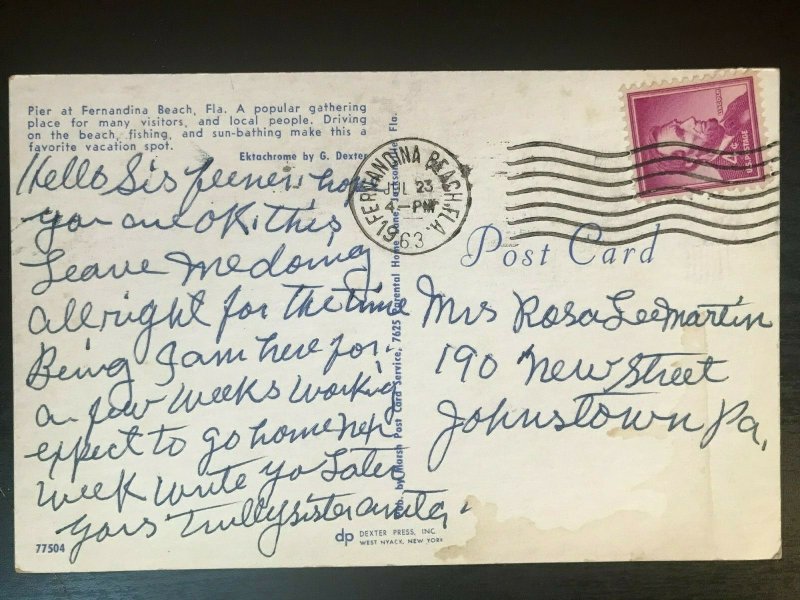 Pier at Fernandina Beach, Fla. A popular gathering
place for many visitors, and local people. Driving
on the beach, fishing, and sun-bathing make this a
favorite vacation spot.
Ektachrome by G. Dexter
Hello Sis hope
you are OK. this
Leave Me doing
allright for the time
Being I am here for
a few weeks working
expect to go home nex
week write yo Later
yours Trully sister anita
77504
dp DEXTER PRESS, INC.
WEST NYACK, NEW YORK
Pub. by Marsh Post Card Service, 7625 Parental Home Lane, Jacksonville, Fla.
FERNANDINA BEACH, FLA.
JUL 23
4 - PM
63
4¢
U.S. POSTAGE
Post Card
Mrs Rosa Lee Martin
190 New Street
Johnstown Pa,